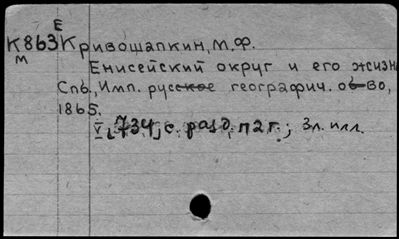 E
К863 Кривошапкин, М.Ф.
M
Енисейский округ и его жизнь
Спб., Имп. русское географич. об-во,
1865.
V, 734, с. разд. паг.; 3 л. илл.